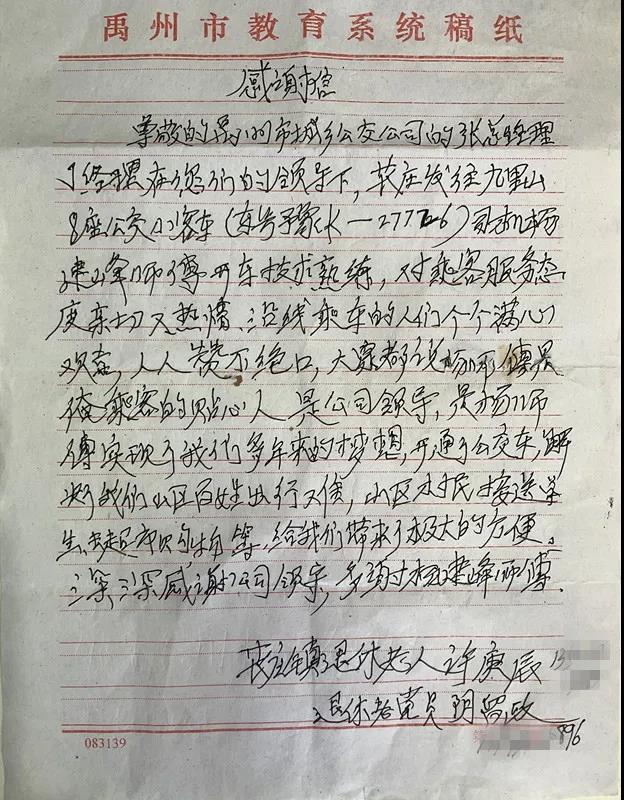 禹州市教育系统稿纸
感谢信
尊敬的禹州市城乡公交公司的张总经理
经理在您们的领导下,苌庄发往九里山
8座公交小客车(车号予豫K—27726)司机杨
建峰师傅开车技术熟练,对乘客服务态
度亲切又热情,沿线乘车的人们个个满心
欢喜,人人赞不绝口,大家都说杨师傅是
俺乘客的贴心人 是公司领导,是杨师
傅实现了我们多年来的梦想,开通了公交车,解
决了我们山区百姓出行又便,山区村民接送学
生,去赶市购物等,给我们带来了极大的方便。
深深感谢公司领导,多谢杨建峰师傅。
苌庄镇退休老人许庚辰 13
退休老党员
896
083139